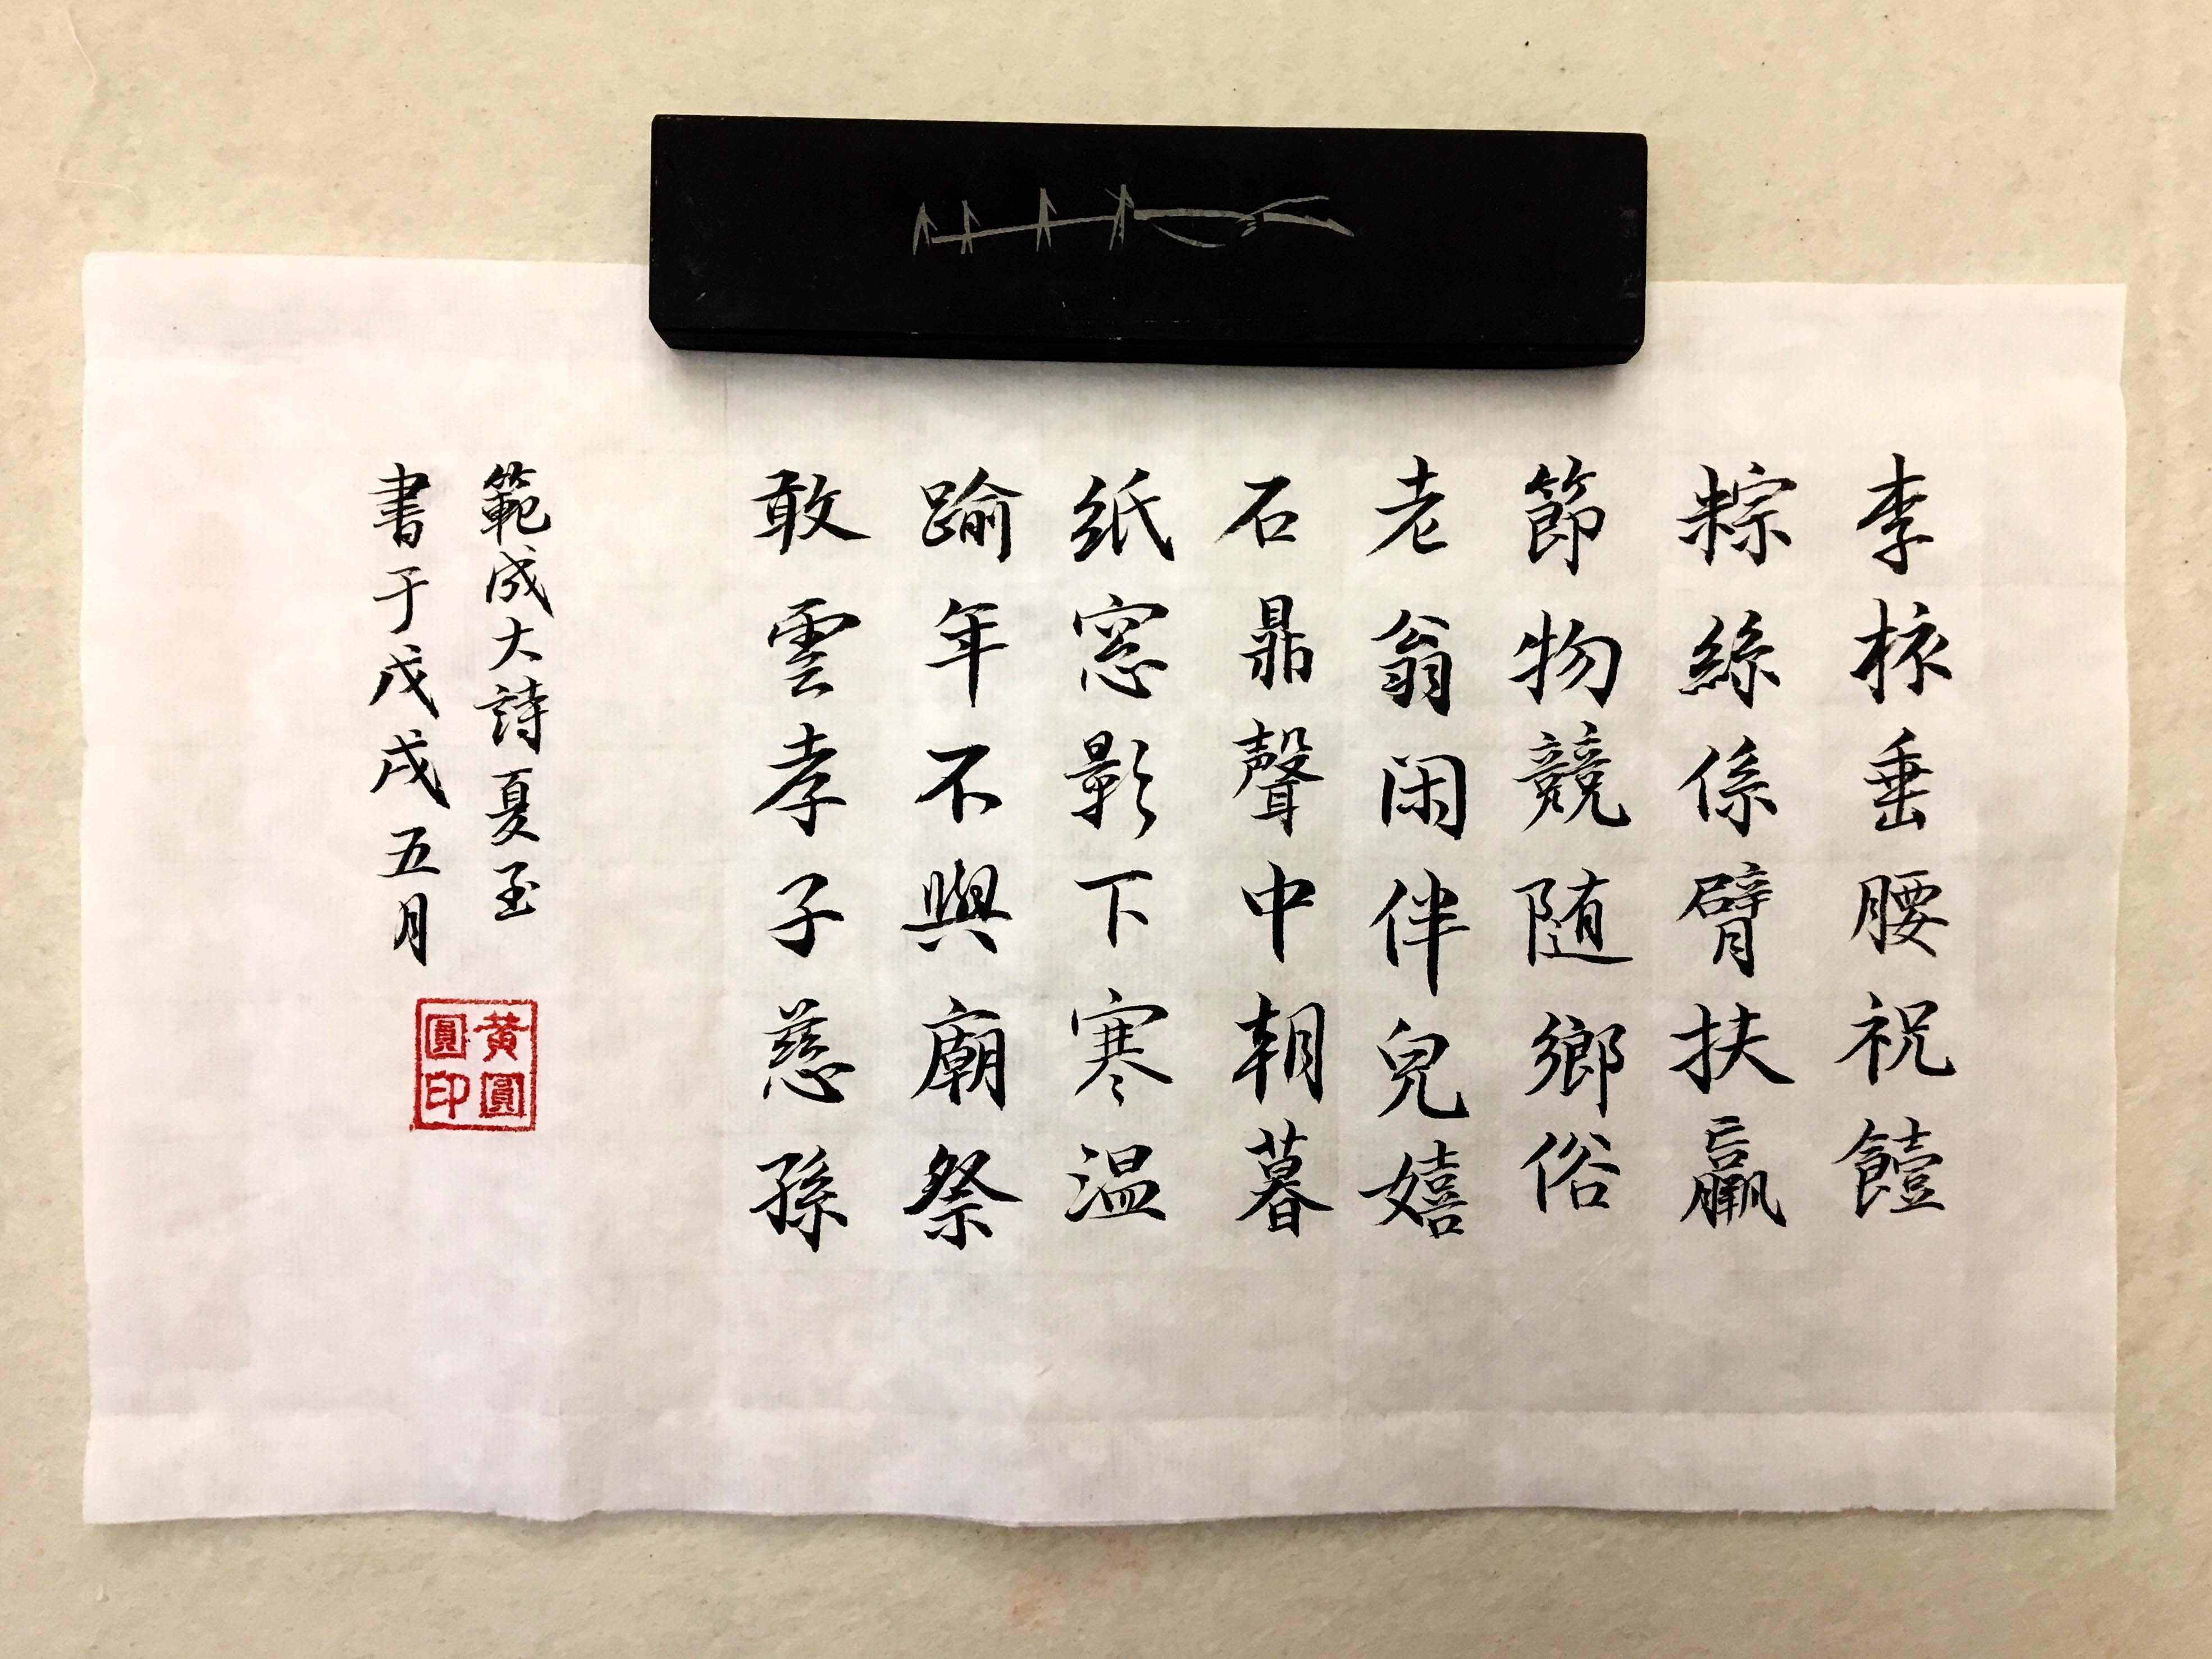 李核垂腰祝饐
粽絲係臂扶羸
節物競随鄉俗
老翁闲伴兒嬉
石鼎聲中朝暮
纸窓影下寒温
踰年不與廟祭
敢雲孝子慈孫
範成大詩夏至
書于戊戌五月
黄圓圓印